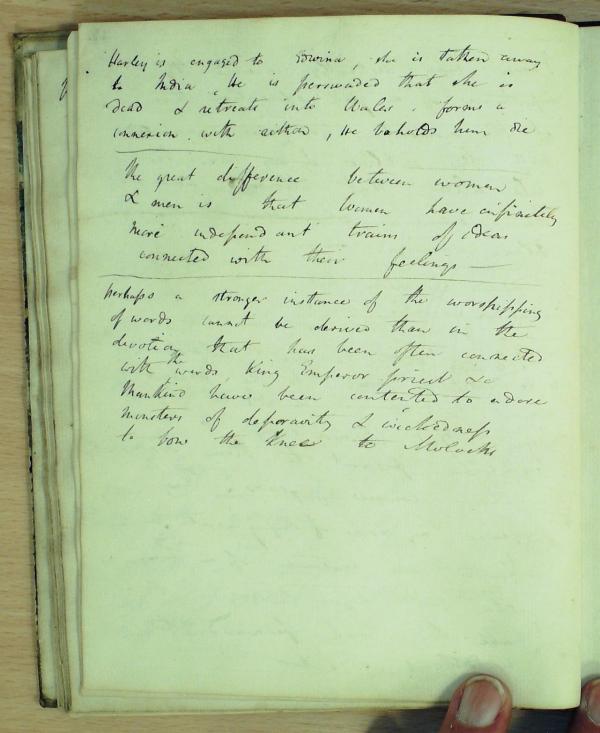 Harley is engaged to Edwina, she is taken away
to India, He is perswaded that she is
dead & retreats into Wales. forms a
connexion with , He beholds him die
The great difference between women
& men is that Women have infinitely
more independant trains of ideas
connected with their feelings —
perhaps a stronger instance of the worshipping
of words cannot be derived than in the
devotion that has been often connected
with the words, King Emperor priest &c
Mankind have been contented to adore
monsters of depravity & wickedness
to bow the knee to Molochs